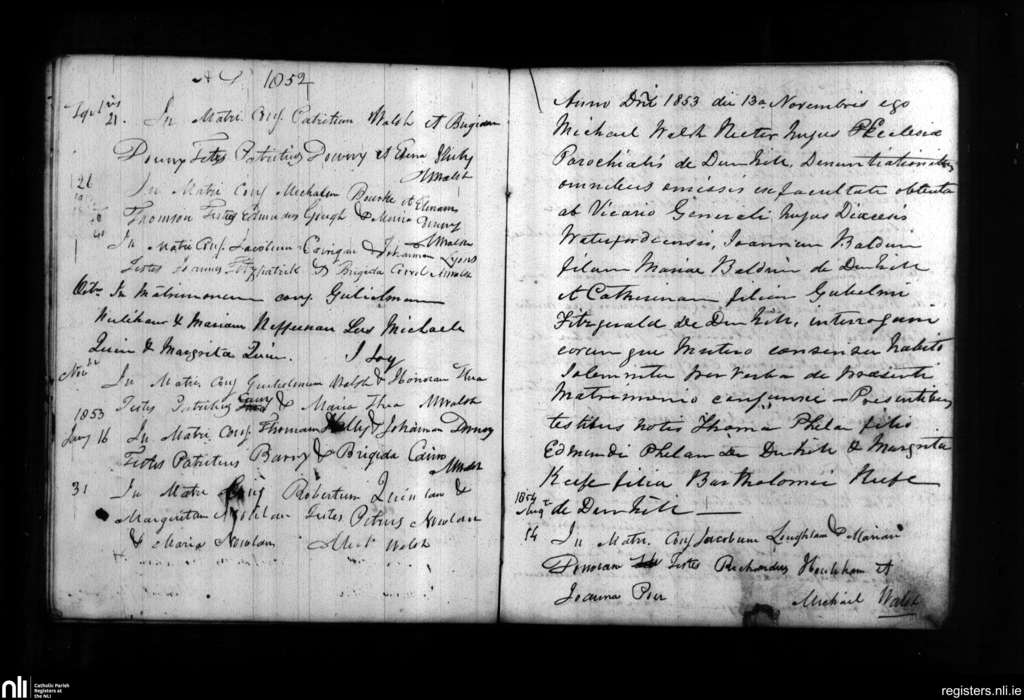 A D 1852
21. In Matri Conj. Patritium Walsh et Brigidam
Downy Testes Patritius Downy et
MWalsh
26
In Matri Conj Michalem Bourke et Elenam
Thomson Testes Gough & Maria Downy
MWalsh
In Matri Conj Jacobum Corrigan & Johannam Lyons
Testes Joannes Fitzpatrick & Brigida MWalsh
Octr In Matrimonium conj. Gulielmum
& Mariam Heffernan Michaele
Quin & Margrita Quin. I Foy
Novr
In Matri Conj Gulielmum Walsh & Honoram Shea
Testes Patritius & Maria Shea MWalsh
1853
Jany 16 In Matri Conj. Thomam Kelly & Johannam
Testes Patritius Barry & Brigida
MWalsh
31 In Matri Conj Robertum Quinlan &
Margaritam Testes Petrus Nowlan
& Maria Nowlan Mick Walsh
Anno Dni 1853 die 13a Novembris ego
Michael Walsh Rector hujus Ecclesia
Parochialis de Dunkitt, Denuntiationibus
omnibus omissis ex facultate obtenta
ab Vicario Generali hujus Diocesis
Waterfordiensis, Joannem Baldwin
filium Mariae Baldwin de Dunkitt
et Catherinam filiam Gulielmi
Fitzgerald de Dunkitt, interrogavi
eorumque mutuo consensu habito
Solemniter per verba de praesenti
Matrimonio conjunxi - Presentibus
testibus notis Thoma Phelan filio
Edmundi Phelan de Dunkitt & Margrita
Keefe filia Bartholomei Keefe
1854
Augt de Dunkitt —
14 In Matri. Conj Jacobum Loughlan & Mariam
Donovan Testes Richardus Houlahan et
Joanna Poer
Michael Walsh
nli Catholic Parish
Registers at
the NLI
registers.nli.ie